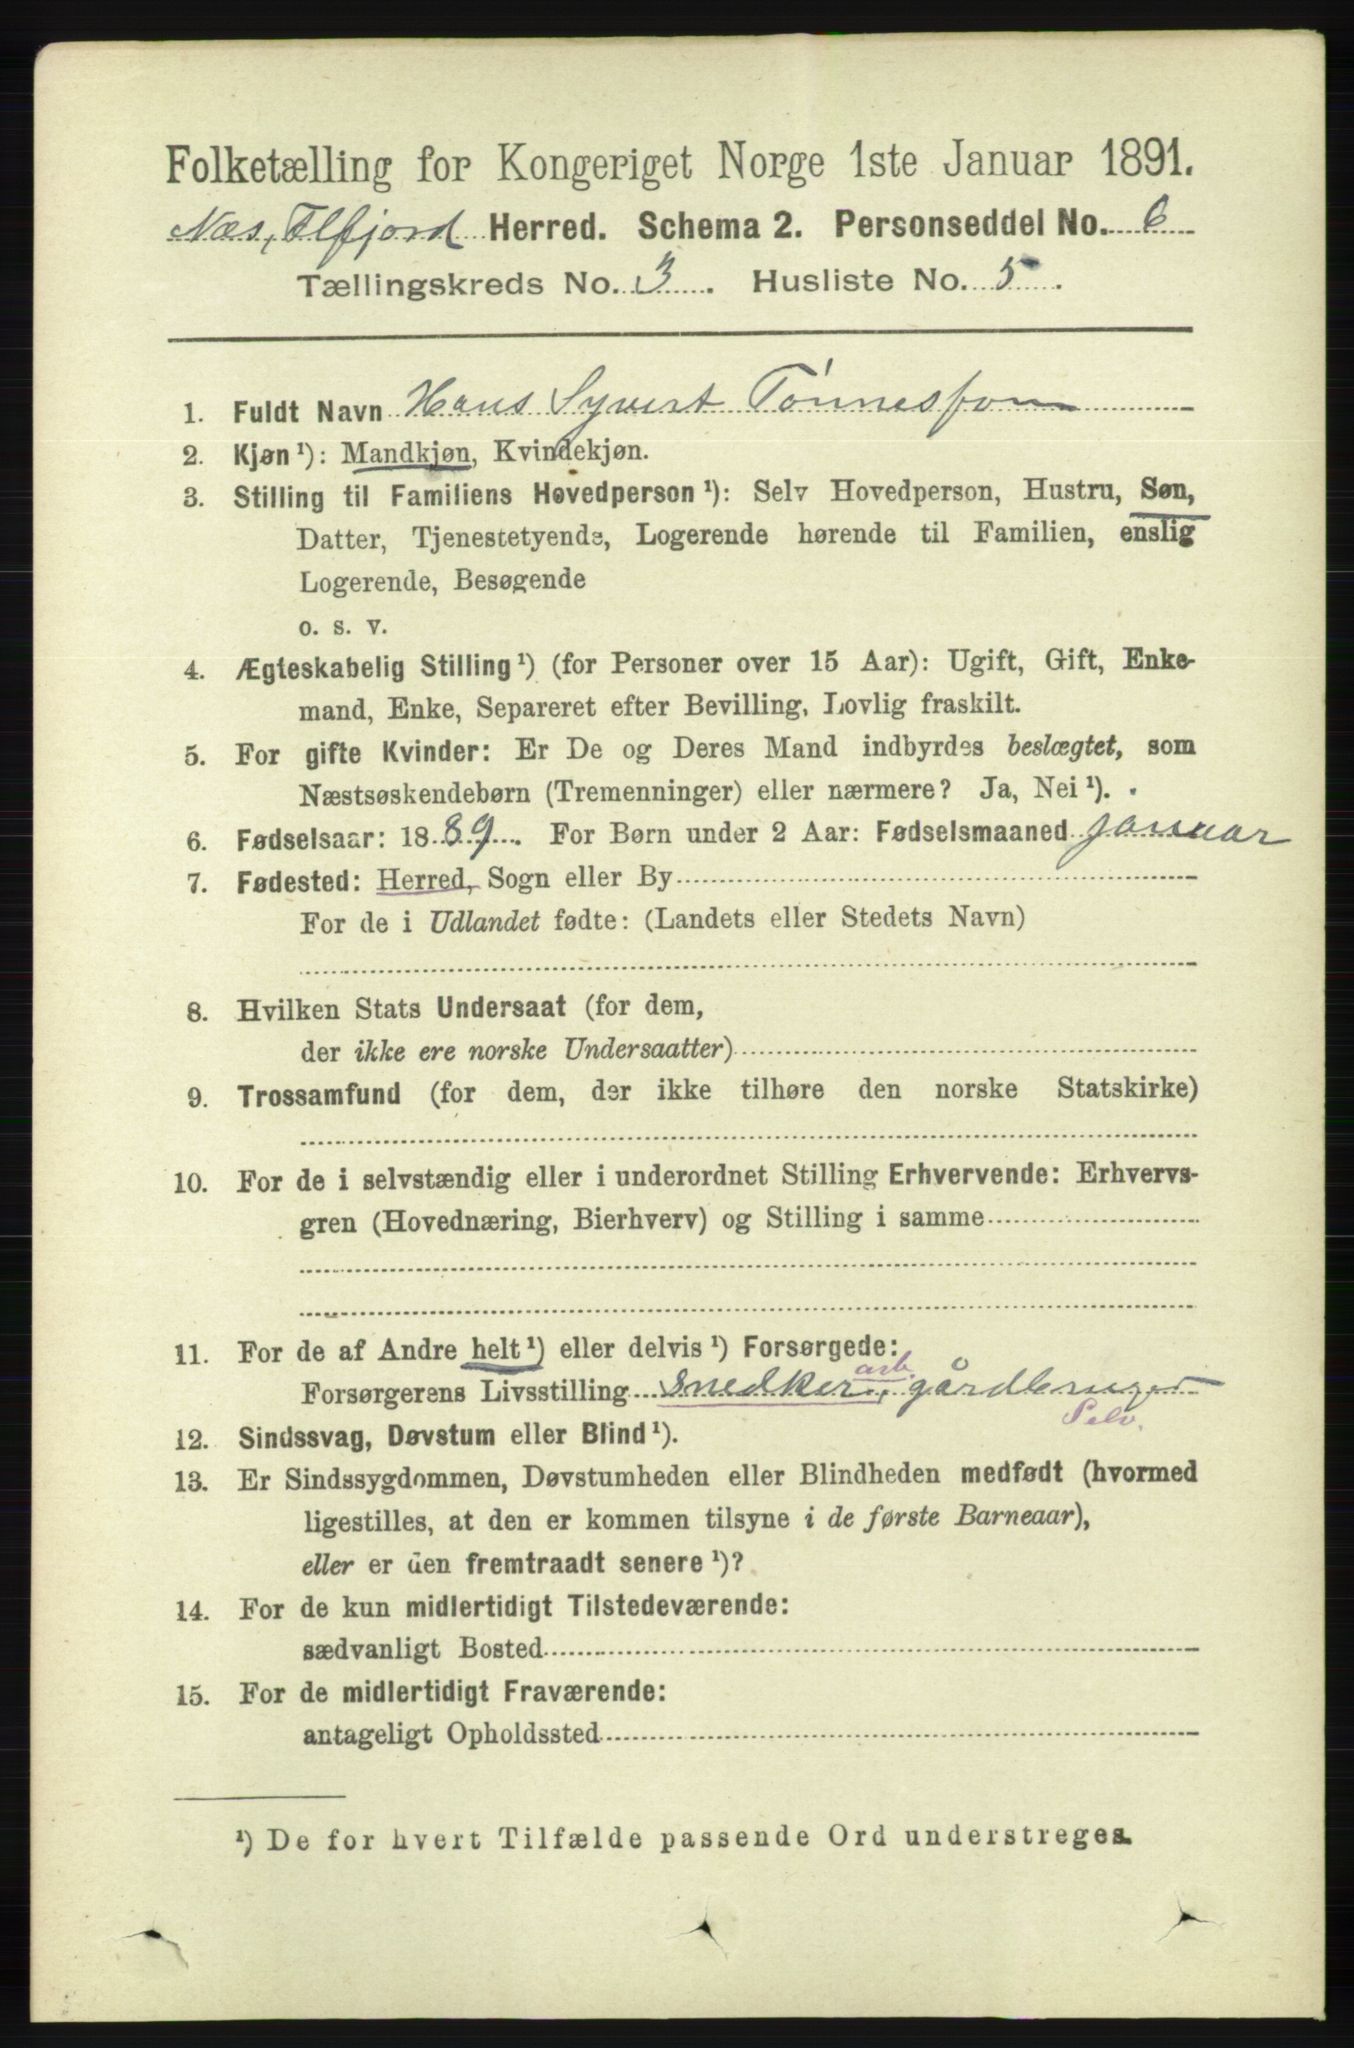 Folketælling for Kongeriget Norge 1ste Januar 1891.
Næs, Flfjord Herred. Schema 2. Personseddel No. 6
Tællingskreds No. 3. Husliste No. 5.
1. Fuldt Navn Hans Syvert Tönnesson
2. Kjøn ¹): Mandkjøn, Kvindekjøn.
3. Stilling til Familiens Hovedperson ¹): Selv Hovedperson, Hustru, Søn,
Datter, Tjenestetyende, Logerende hørende til Familien, enslig
Logerende, Besøgende
o. s. v.
4. Ægteskabelig Stilling ¹) (for Personer over 15 Aar): Ugift, Gift, Enke-
mand, Enke, Separeret efter Bevilling, Lovlig fraskilt.
5. For gifte Kvinder: Er De og Deres Mand indbyrdes beslægtet, som
Næstsøskendebørn (Tremenninger) eller nærmere? Ja, Nei ¹).
6. Fødselsaar: 1889. For Børn under 2 Aar: Fødselsmaaned januar
7. Fødested: Herred, Sogn eller By
For de i Udlandet fødte: (Landets eller Stedets Navn)
8. Hvilken Stats Undersaat (for dem,
der ikke ere norske Undersaatter)
9. Trossamfund (for dem, der ikke tilhøre den norske Statskirke)
10. For de i selvstændig eller i underordnet Stilling Erhvervende: Erhvervs-
gren (Hovednæring, Bierhverv) og Stilling i samme
11. For de af Andre helt ¹) eller delvis ¹) Forsørgede:
arb.
Forsørgerens Livsstilling snedker, gårdbruger
Selv.
12. Sindssvag, Døvstum eller Blind ¹).
13. Er Sindssygdommen, Døvstumheden eller Blindheden medfødt (hvormed
ligestilles, at den er kommen tilsyne i de første Barneaar),
eller er den fremtraadt senere ¹)?
14. For de kun midlertidigt Tilstedeværende:
sædvanligt Bosted
15. For de midlertidigt Fraværende:
antageligt Opholdssted
¹) De for hvert Tilfælde passende Ord understreges.